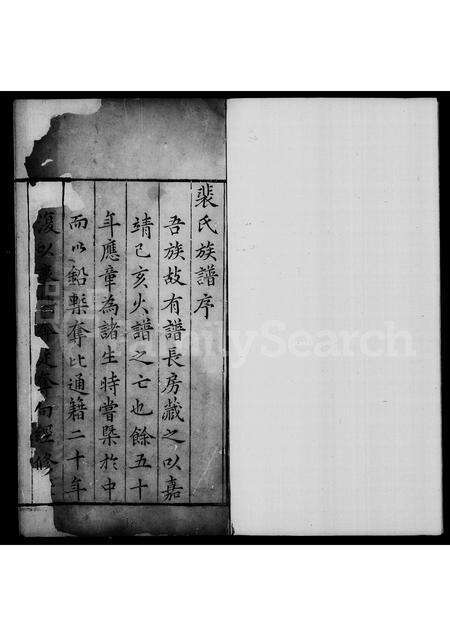 裴氏族譜序
吾族故有譜長房藏之以嘉
靖己亥火譜之亡也餘五十
年應章為諸生時嘗槩於中
而以鉛槧奪比通籍二十年
復以
修
FamilySearch